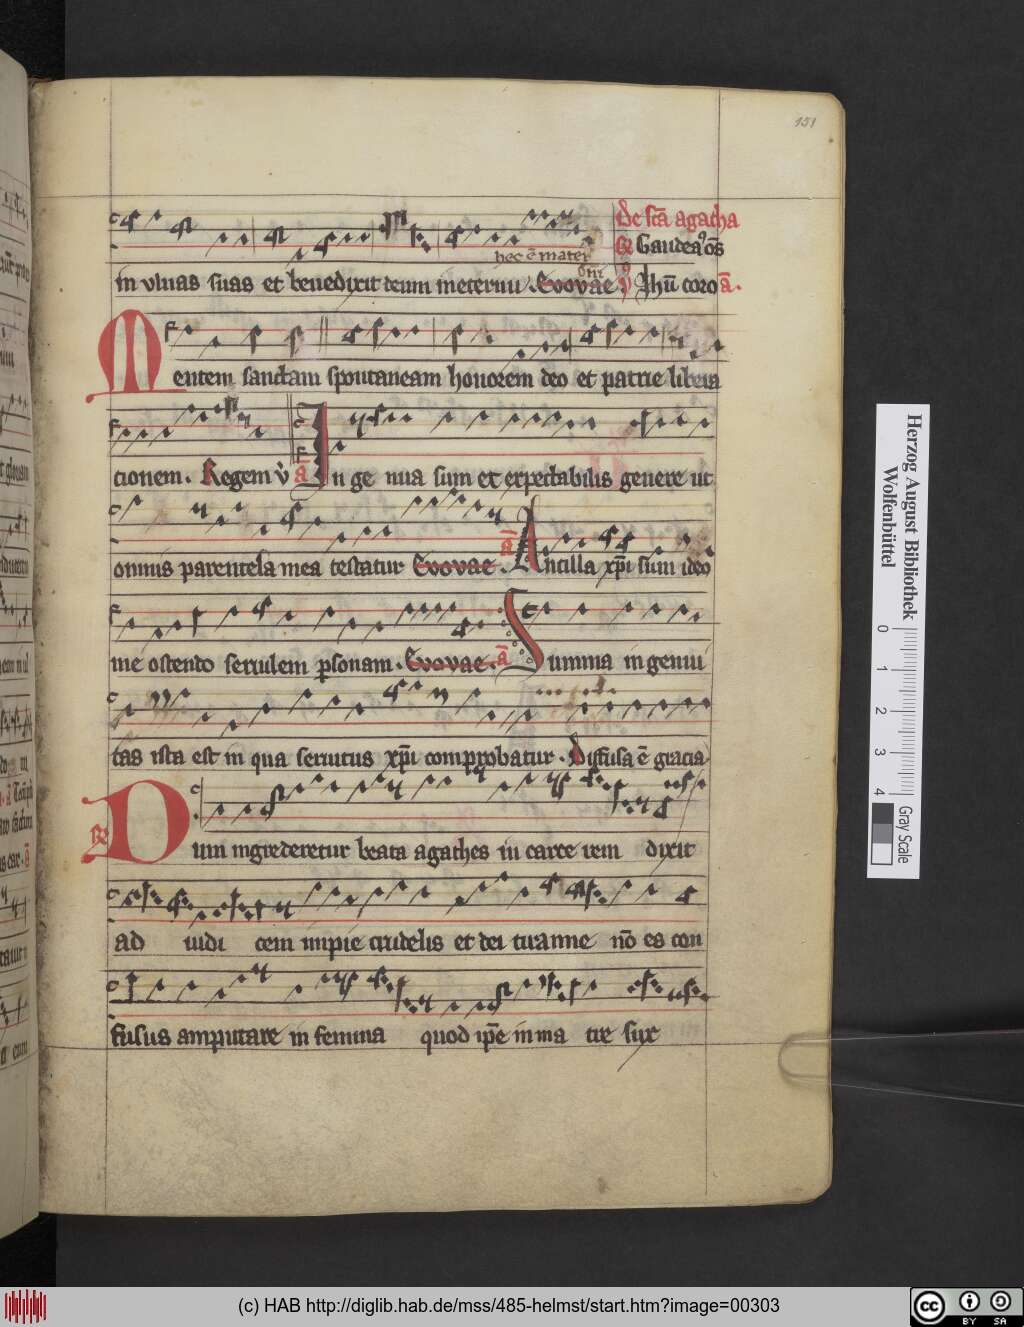 151
De scā agatha
Gaudeaꝰ oēs
hec ē mater
in vlnas suas et benedixit deum in eternū . Euovae . Ihū coro a.
Mentem sanctam spontaneam honorem deo et patrie libera
cionem . Regem v̄ a In ge nua sum et expectabilis genere ut
omnis parentela mea testatur Euovae . a Ancilla xp̄i sum ideo
me ostendo seruilem p̱sonam . Euovae . a Summa ingenui
tas ista est in qua seruitus xp̄i comprobatur . Diffusa ē gracia
Dum ingrederetur beata agathes in carce rem dixit
ad iudi cem impie crudelis et dei tiranne nō es con
fusus amputare in femina quod ip̄e in ma tre sux
Herzog August Bibliothek
Wolfenbüttel
0 1 2 3 4
Gray Scale
(c) HAB http://diglib.hab.de/mss/485-helmst/start.htm?image=00303
cc BY SA